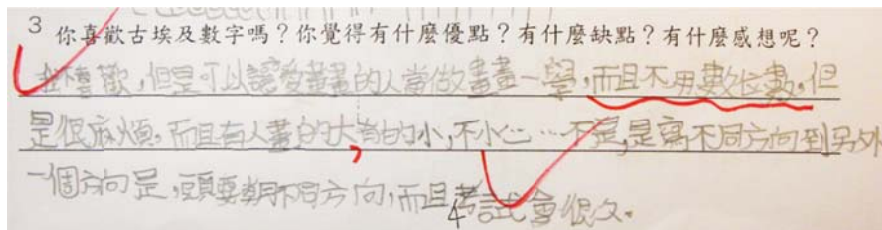 3 你喜歡古埃及數字嗎？你覺得有什麼優點？有什麼缺點？有什麼感想呢？
我不喜歡，但是可以讓愛畫畫的人當做畫畫一學，而且不用數位數，但
是很麻煩，而且有人畫的大有的小，不小心…不是，是寫不同方向到另外
一個方向是，頭要朝不同方向，而且考試會很久。